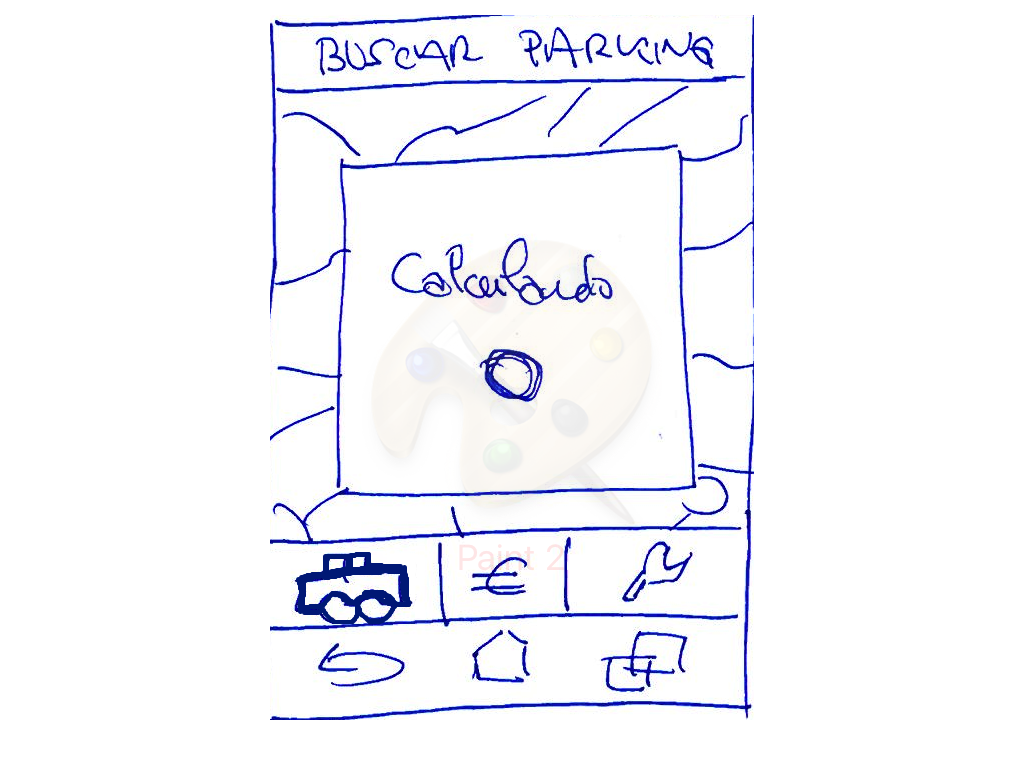 BUSCAR PARKING
Calculando
Paint 2
€